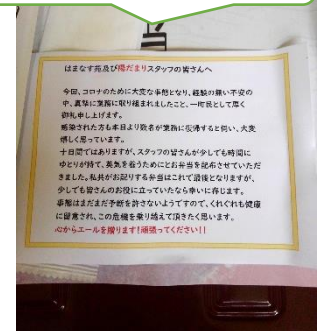 はまなす苑及び陽だまりスタッフの皆さんへ
今回、コロナのために大変な事態となり、経験の無い不安の
中、真摯に業務に取り組まれましたこと、一町民として厚く
御礼申し上げます。
感染された方も本日より数名が業務に復帰すると伺い、大変
嬉しく思っています。
十日間ではありますが、スタッフの皆さんが少しでも時間に
ゆとりが持て、英気を養うためにとお弁当を配布させていただ
きました。私共がお配りする弁当はこれで最後となりますが、
少しでも皆さんのお役に立っていたなら幸いに存じます。
事態はまだまだ予断を許さないようですので、くれぐれも健康
に留意され、この危機を乗り越えて頂きたく思います。
心からエールを贈ります!頑張ってください!!